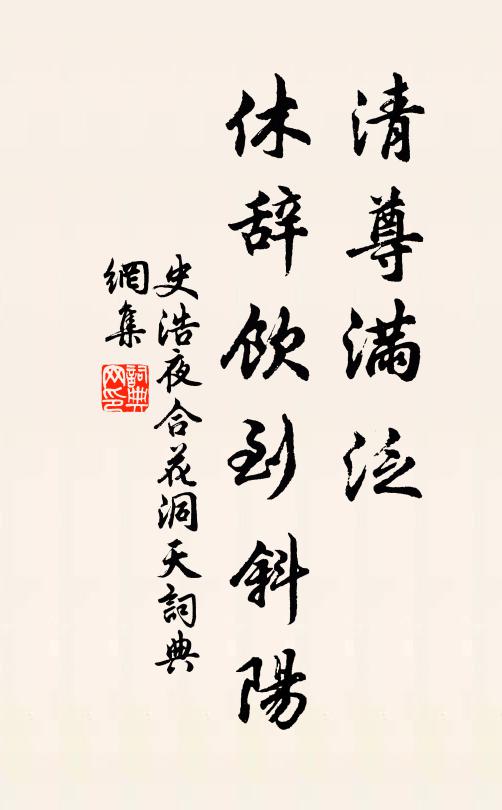 清尊满泛
休辞饮到斜陽
史浩夜合花洞天詞典
網集
詞典网印